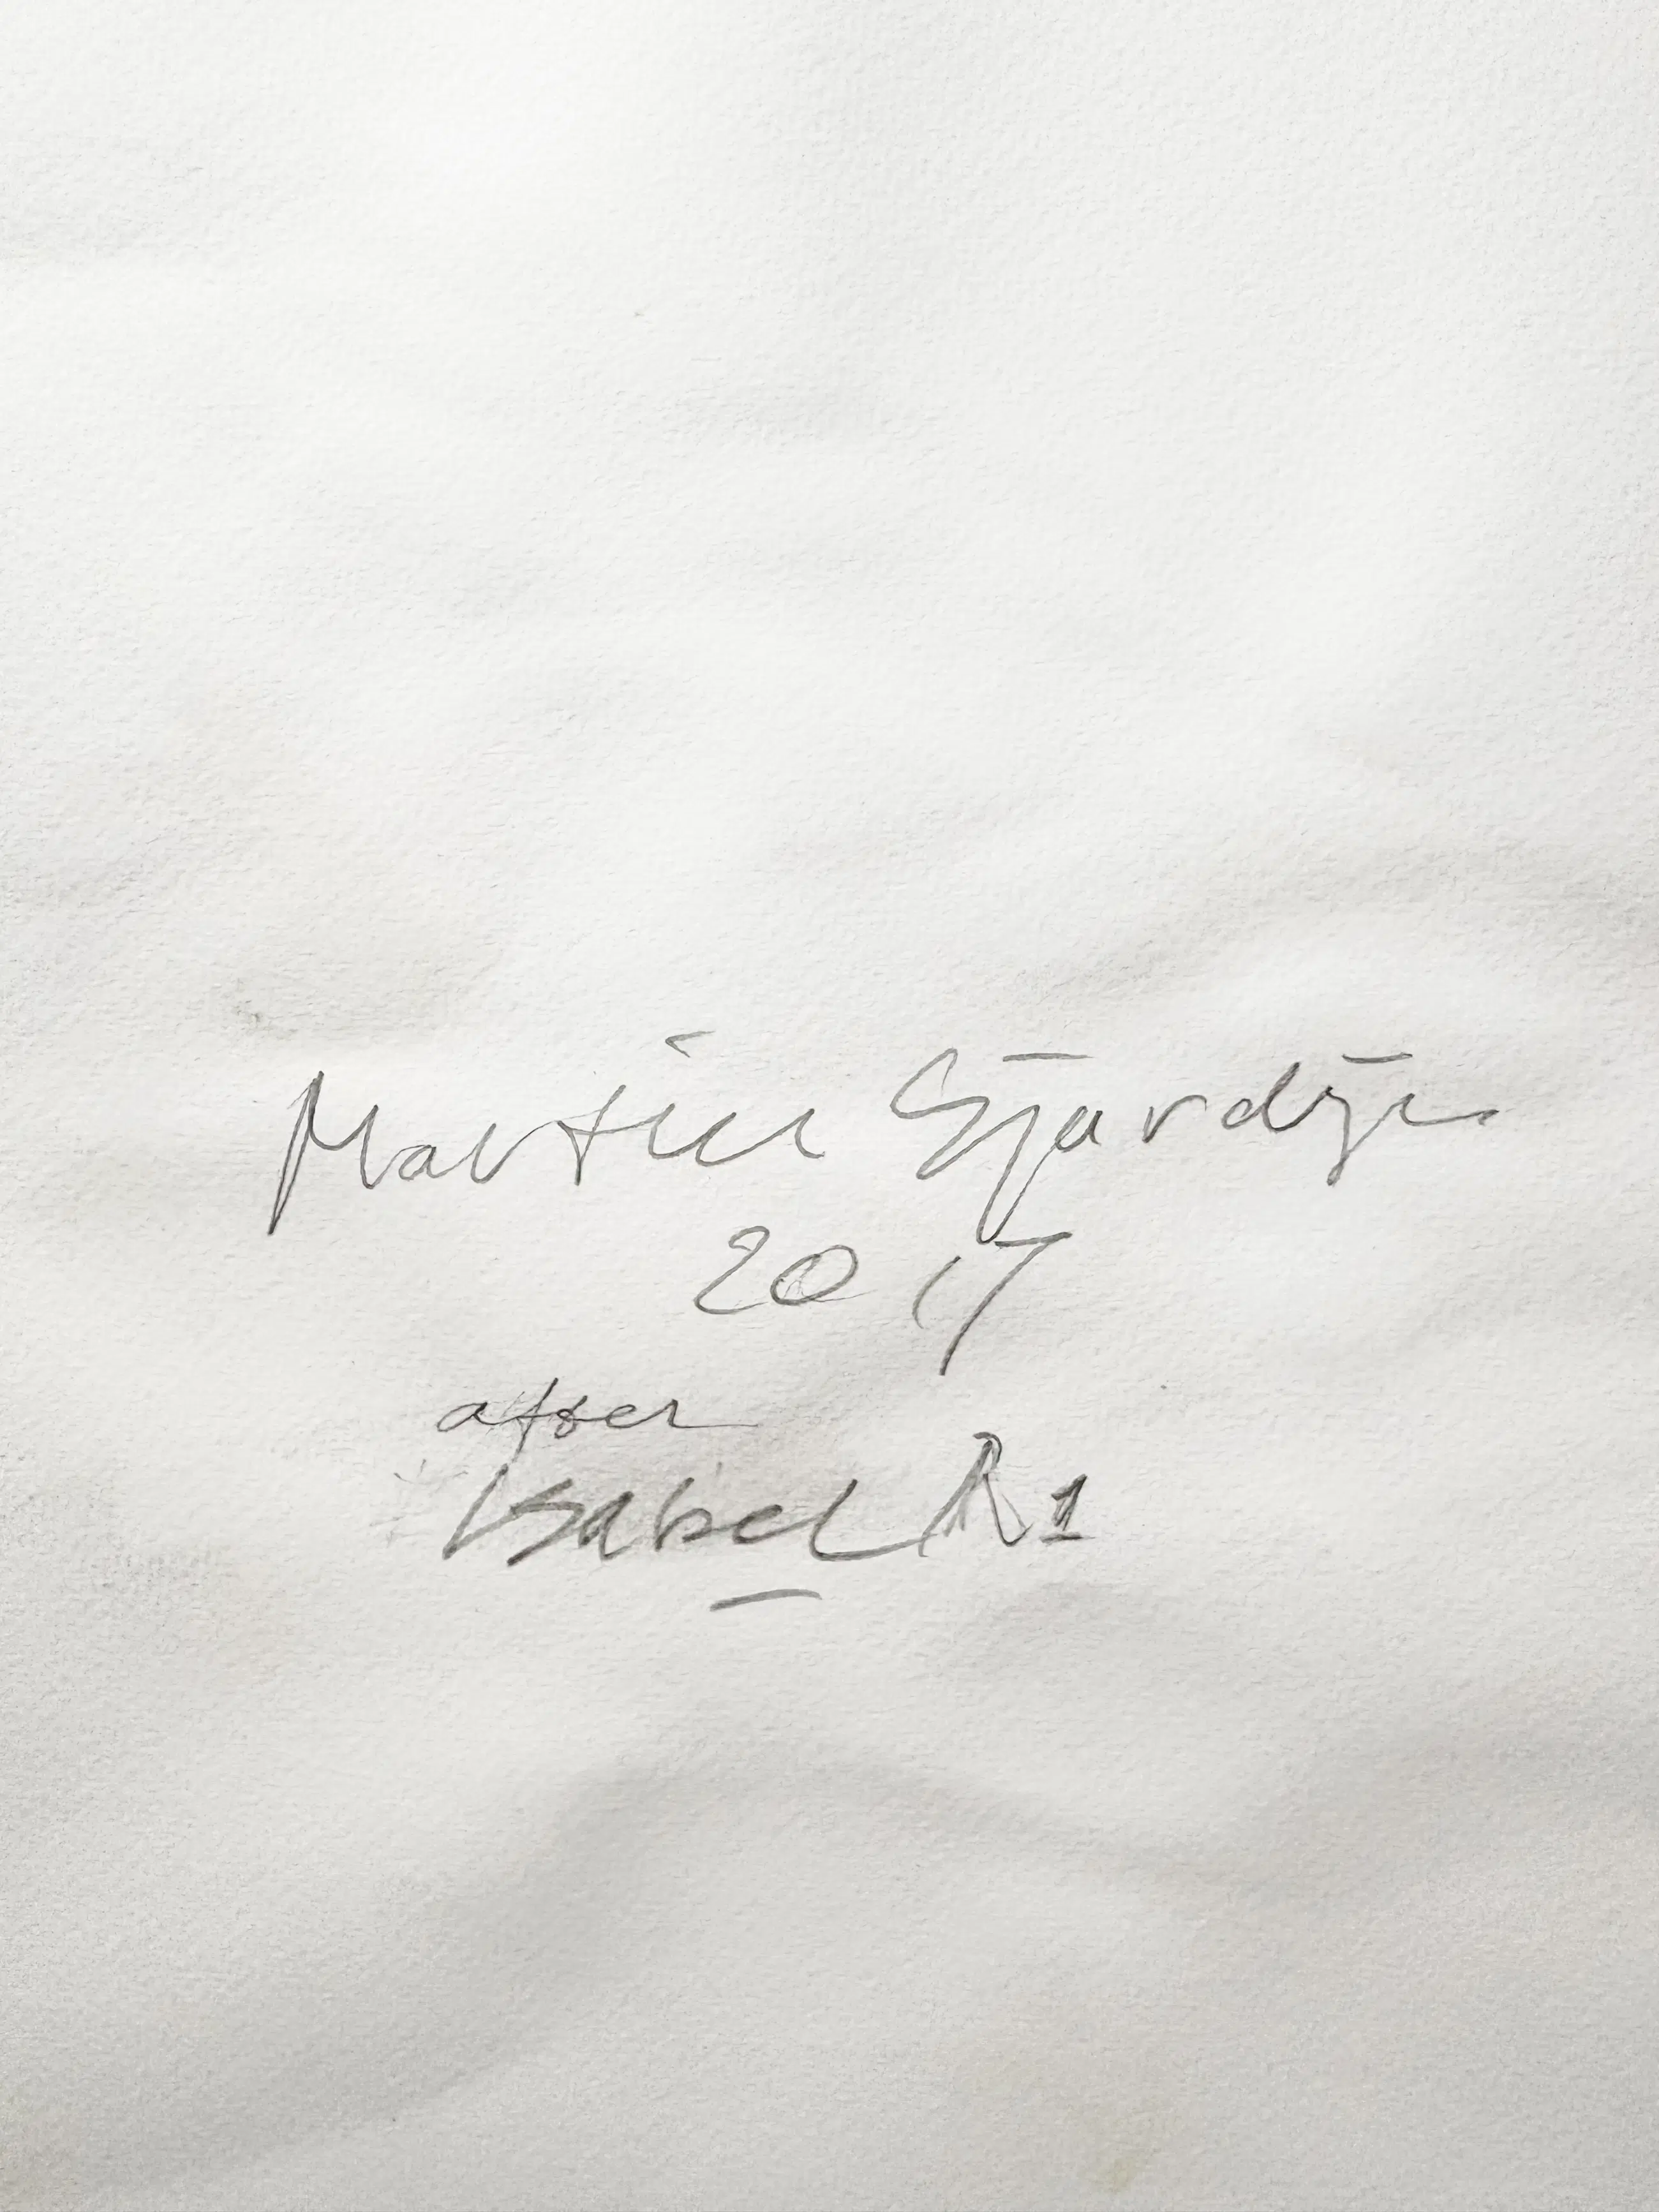 Martin
2017
after
Isabel R1